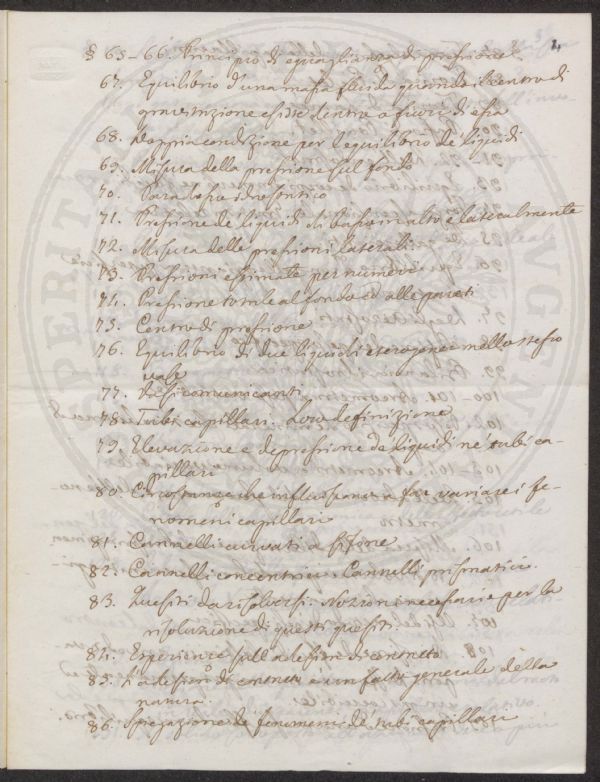 § 65-66. Principio di eguaglianza di pressione
67. Equilibrio d'una massa fluida quando il centro di
gravitazione esiste dentro o fuori di essa
68. Doppia condizione per l'equilibrio de' liquidi
69. Misura della pressione sul fondo
70. Paradosso idrostatico
71. Pressione de' liquidi di basso in alto e lateralmente
72. Misura delle pressioni laterali
73. Pressioni estimate per numeri
74. Pressione totale al fondo ed alle pareti
75. Centro di pressione
76. Equilibrio di due liquidi eterogenei nello stesso
vaso
77. Vasi comunicanti
78. Tubi capillari. Loro definizione
79. Elevazione e depressione de' liquidi ne' tubi ca-
pillari
80. Circostanze che influiscono a far variare i fe-
nomeni capillari
81. Cannelli curvati a sifone
82. Cannelli concentrici. Cannelli prismatici.
83. Quesiti da risolversi. Nozioni necessarie per la
risoluzione di questi quesiti
84. Esperienze sull'adesione di contatto
85. L'adesione di contatto è un fatto generale della
natura
86. Spiegazione de' fenomeni de' tubi capillari